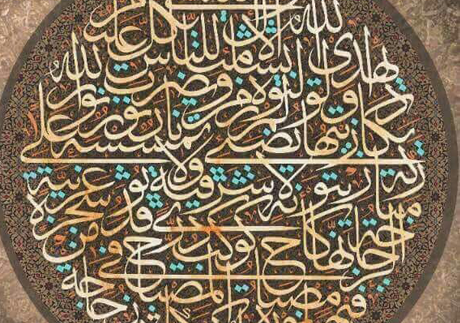 فيها مصباح المصباح في زجاجة
الزجاجة كأنها كوكب دري يوقد من شجرة
مباركة زيتونة لا شرقية ولا غربية
يكاد زيتها يضيء ولو لم تمسسه نار نور على نور
يهدي الله لنوره من يشاء ويضرب الله الأمثال للناس
بكل عليم